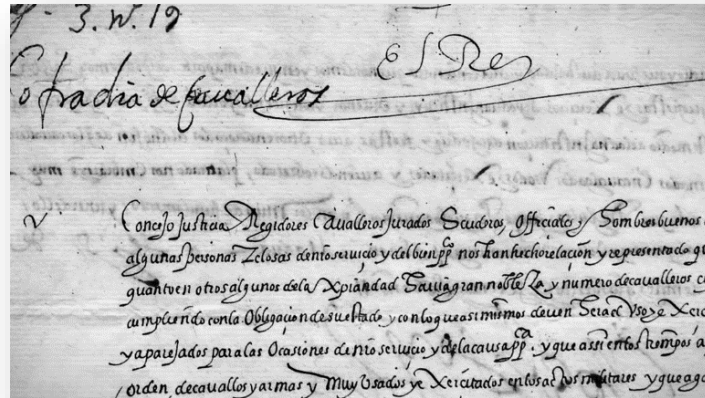 3. N. 19
El Rey
Cofradia de Cavalleros
Concejo Justicia Regidores Cavalleros Jurados Scuderos, Officiales y Hombres buenos
algunas personas Zelosas de nro servicio y del bien ppco nos han hecho relación y representado
quanto en otros algunos de la Xpiandad havia gran nobleza, y número de cavalleros
cumpliendo con la Obligacion de su estado, y con lo que asi mismos deven
y aparejados para las Ocasiones de nro servicio y de la causa ppca. y que assi en tos tiempos
orden de cavallos y armas y Muy Usados ye Xercitados en los actos militares y que